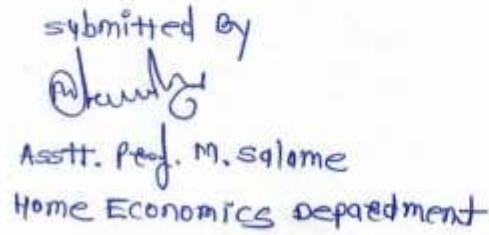 submitted By
Asstt. Prof. M. Salame
Home Economics Depardment